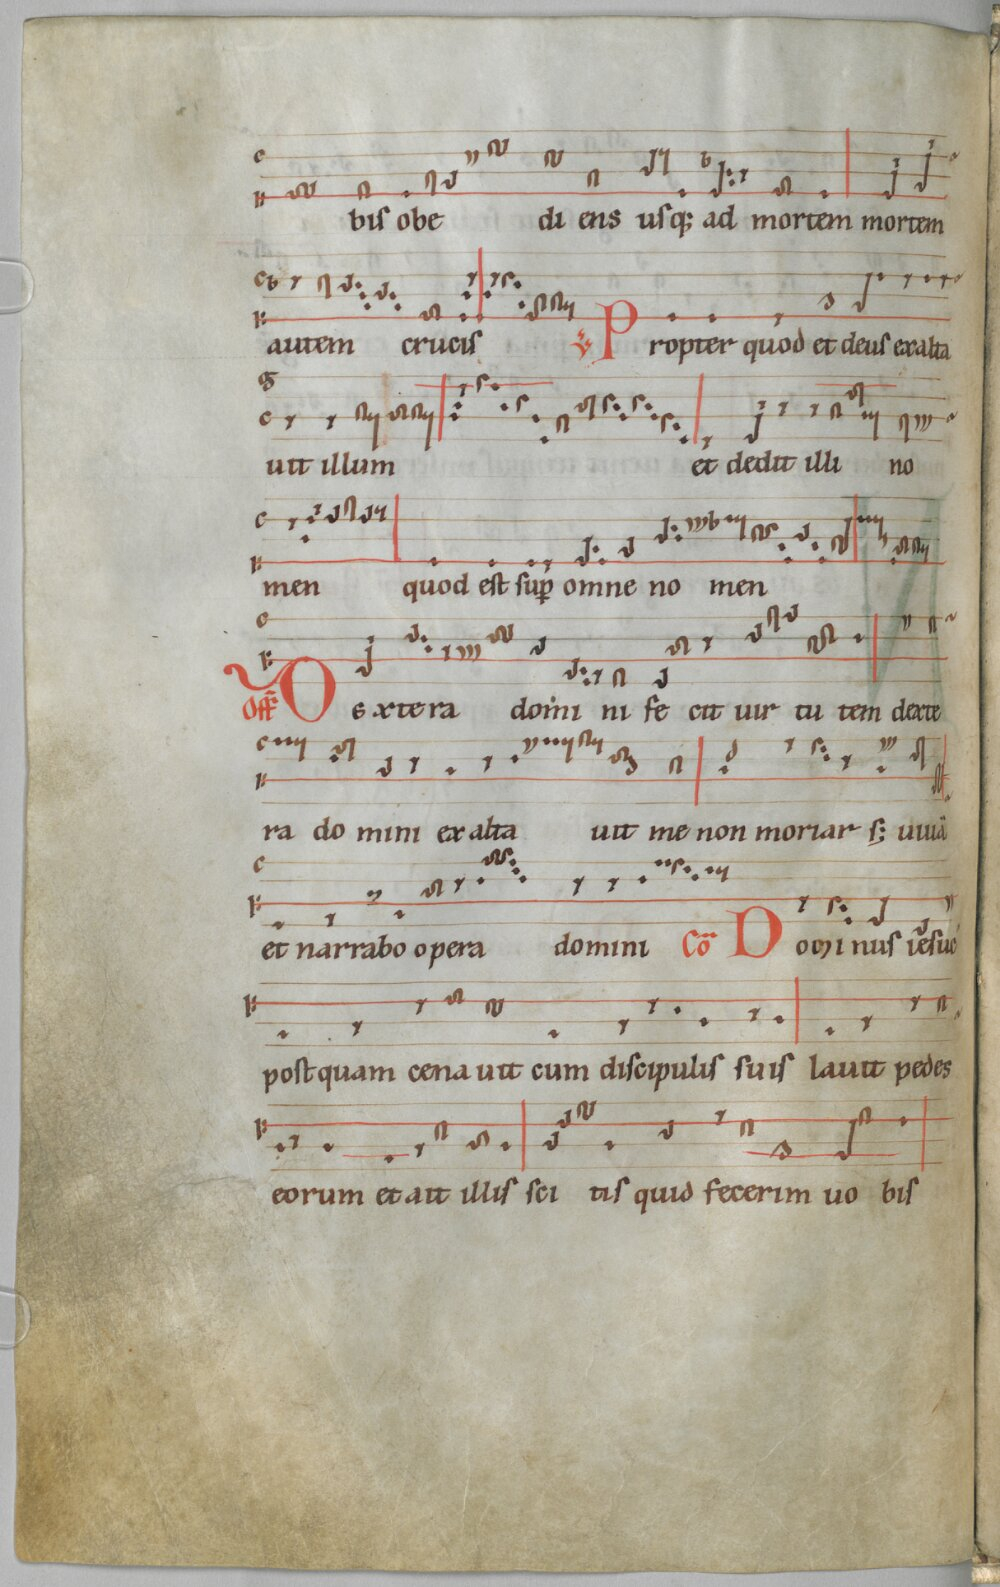 bis obe di ens usq; ad mortem mortem
autem crucis ℣ Propter quod et deus exalta
uit illum et dedit illi no
men quod est sup omne no men
Off Dextera domini ni fe cit uir tu tem dexte
ra domini exalta uit me non moriar s; uiuā
et narrabo opera domini Cō Dominus iesus
postquam cenauit cum discipulis suis lauit pedes
eorum et ait illis sci tis quid fecerim uo bis